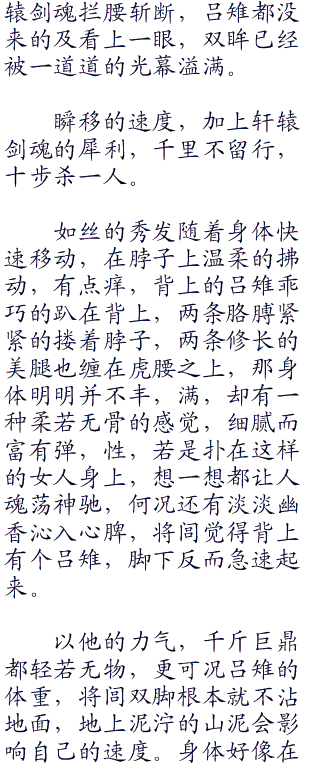 辕剑魂拦腰斩断，吕雉都没
来的及看上一眼，双眸已经
被一道道的光幕溢满。
瞬移的速度，加上轩辕
剑魂的犀利，千里不留行，
十步杀一人。
如丝的秀发随着身体快
速移动，在脖子上温柔的拂
动，有点痒，背上的吕雉乖
巧的趴在背上，两条胳膊紧
紧的搂着脖子，两条修长的
美腿也缠在虎腰之上，那身
体明明并不丰，满，却有一
种柔若无骨的感觉，细腻而
富有弹，性，若是扑在这样
的女人身上，想一想都让人
魂荡神驰，何况还有淡淡幽
香沁入心脾，将闾觉得背上
有个吕雉，脚下反而急速起
来。
以他的力气，千斤巨鼎
都轻若无物，更可况吕雉的
体重，将闾双脚根本就不沾
地面，地上泥泞的山泥会影
响自己的速度。身体好像在